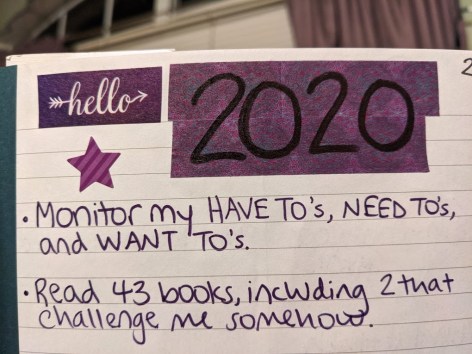 hello
2020
2
• Monitor my HAVE TO's, NEED TO's,
and WANT TO's.
• Read 43 books, including 2 that
challenge me somehow.